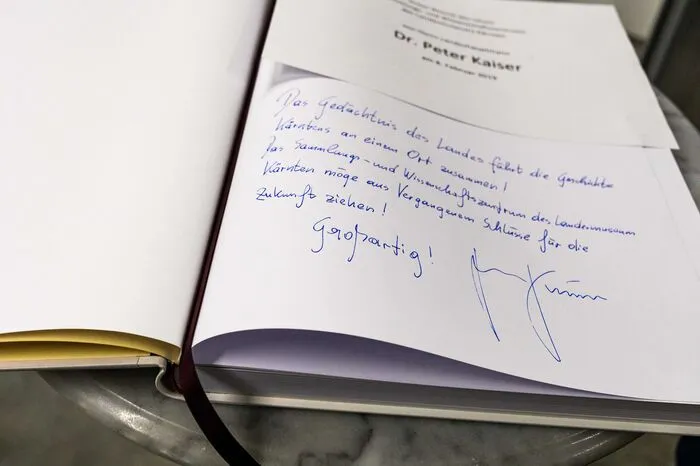 Dr. Peter Kaiser
am 6. Februar 2019
Das Gedächtnis des Landes führt die Geschichte
Kärntens an einem Ort zusammen!
Das Sammlungs- und Wissenschaftszentrum des Landesmuseum
Kärnten möge aus Vergangenem Schlüsse für die
Zukunft ziehen!
Großartig!